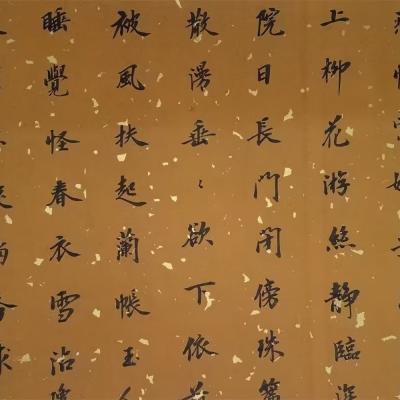 上柳花游絲静臨深
院日長門閉傍珠簾
散漫垂〻欲下依前
被風扶起蘭帳玉人
睡覺怪春衣雪沾瓊